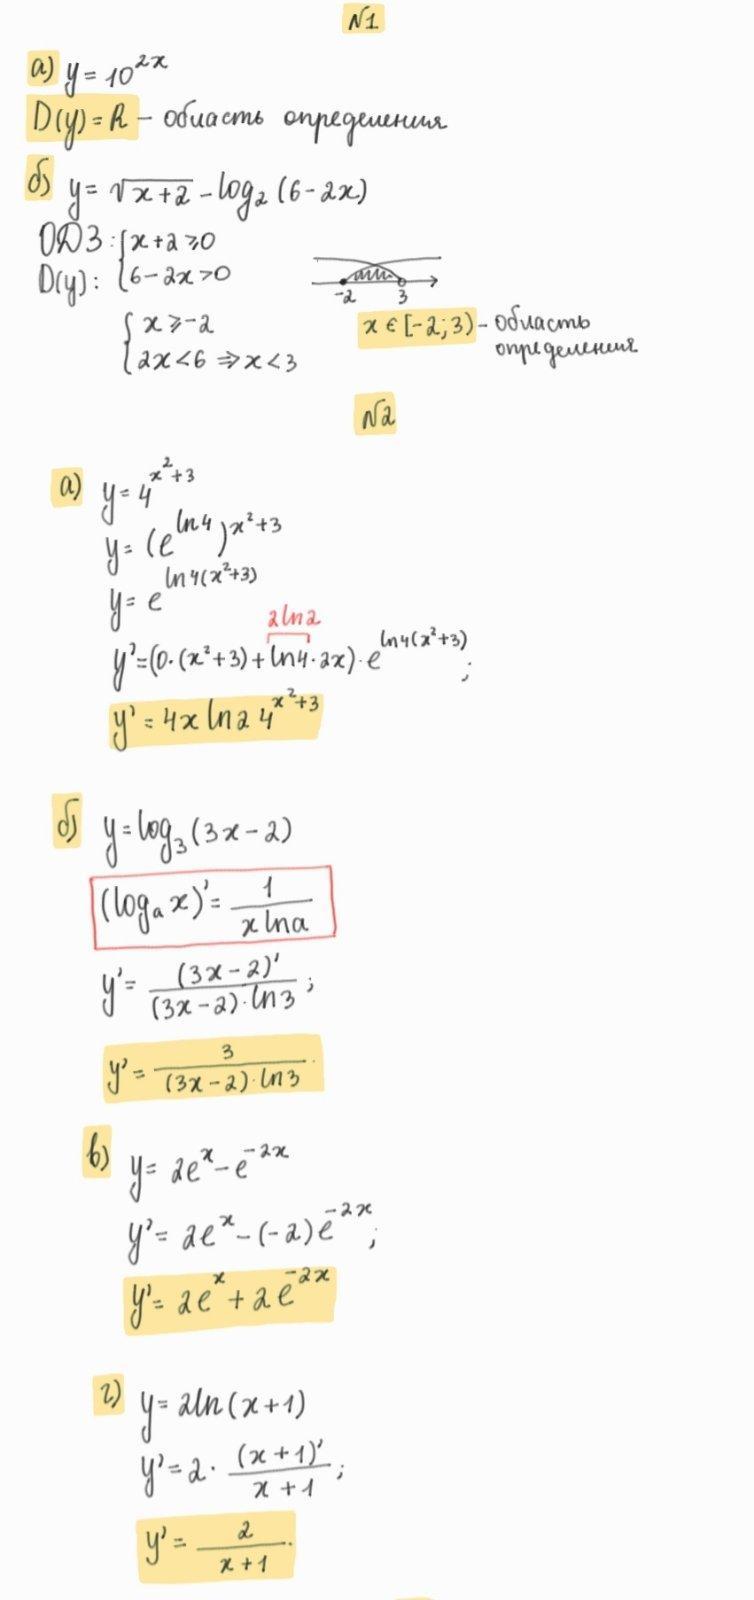 №1
а) y = 10^{2x}
D(y) = R – область определения
б) y = √(x+2) - log₂ (6-2x)
ОДЗ: {x+2 ≥ 0
D(y): {6-2x > 0
-2 3
{x ≥ -2
{2x < 6 ⇒ x < 3
x ∈ [-2; 3) - область
определения
№2
а) y = 4^{x²+3}
y = (e^{ln4})^{x²+3}
y = e^{ln4(x²+3)}
2ln2
y' = (0·(x²+3) + ln4·2x)·e^{ln4(x²+3)};
y' = 4x ln2 4^{x²+3}
б) y = log₃ (3x-2)
(logₐ x)' = 1/(x lna)
y' = (3x-2)'/((3x-2)·ln3);
y' = 3/((3x-2)·ln3).
в) y = 2e^x - e^{-2x}
y' = 2e^x - (-2)e^{-2x};
y' = 2e^x + 2e^{-2x}
г) y = 2ln(x+1)
y' = 2·(x+1)'/(x+1);
y' = 2/(x+1).